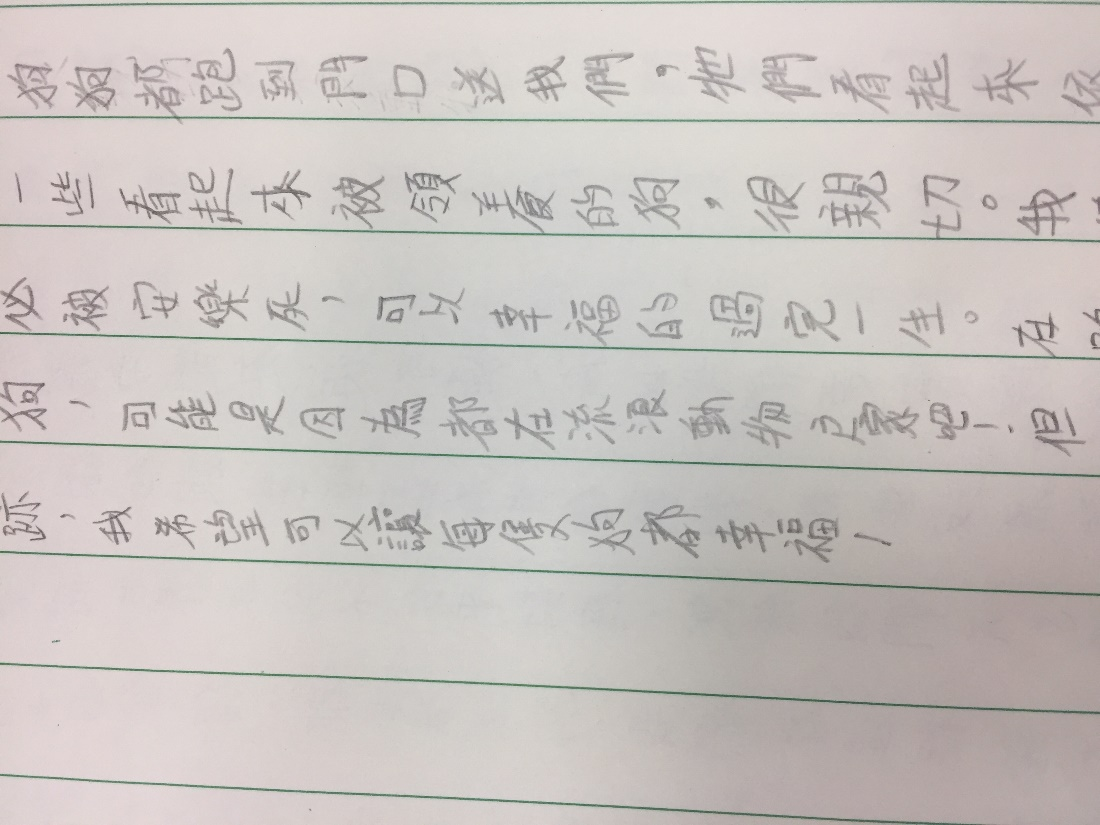 狗狗都跑到門口送我們，牠們看起來依
一些看起來被領養的狗，很親切。我
必被安樂死，可以幸福的過完一生。在
狗，可能是因為都在流浪動物之家吧！但
跡，我希望可以讓每隻狗都幸福！